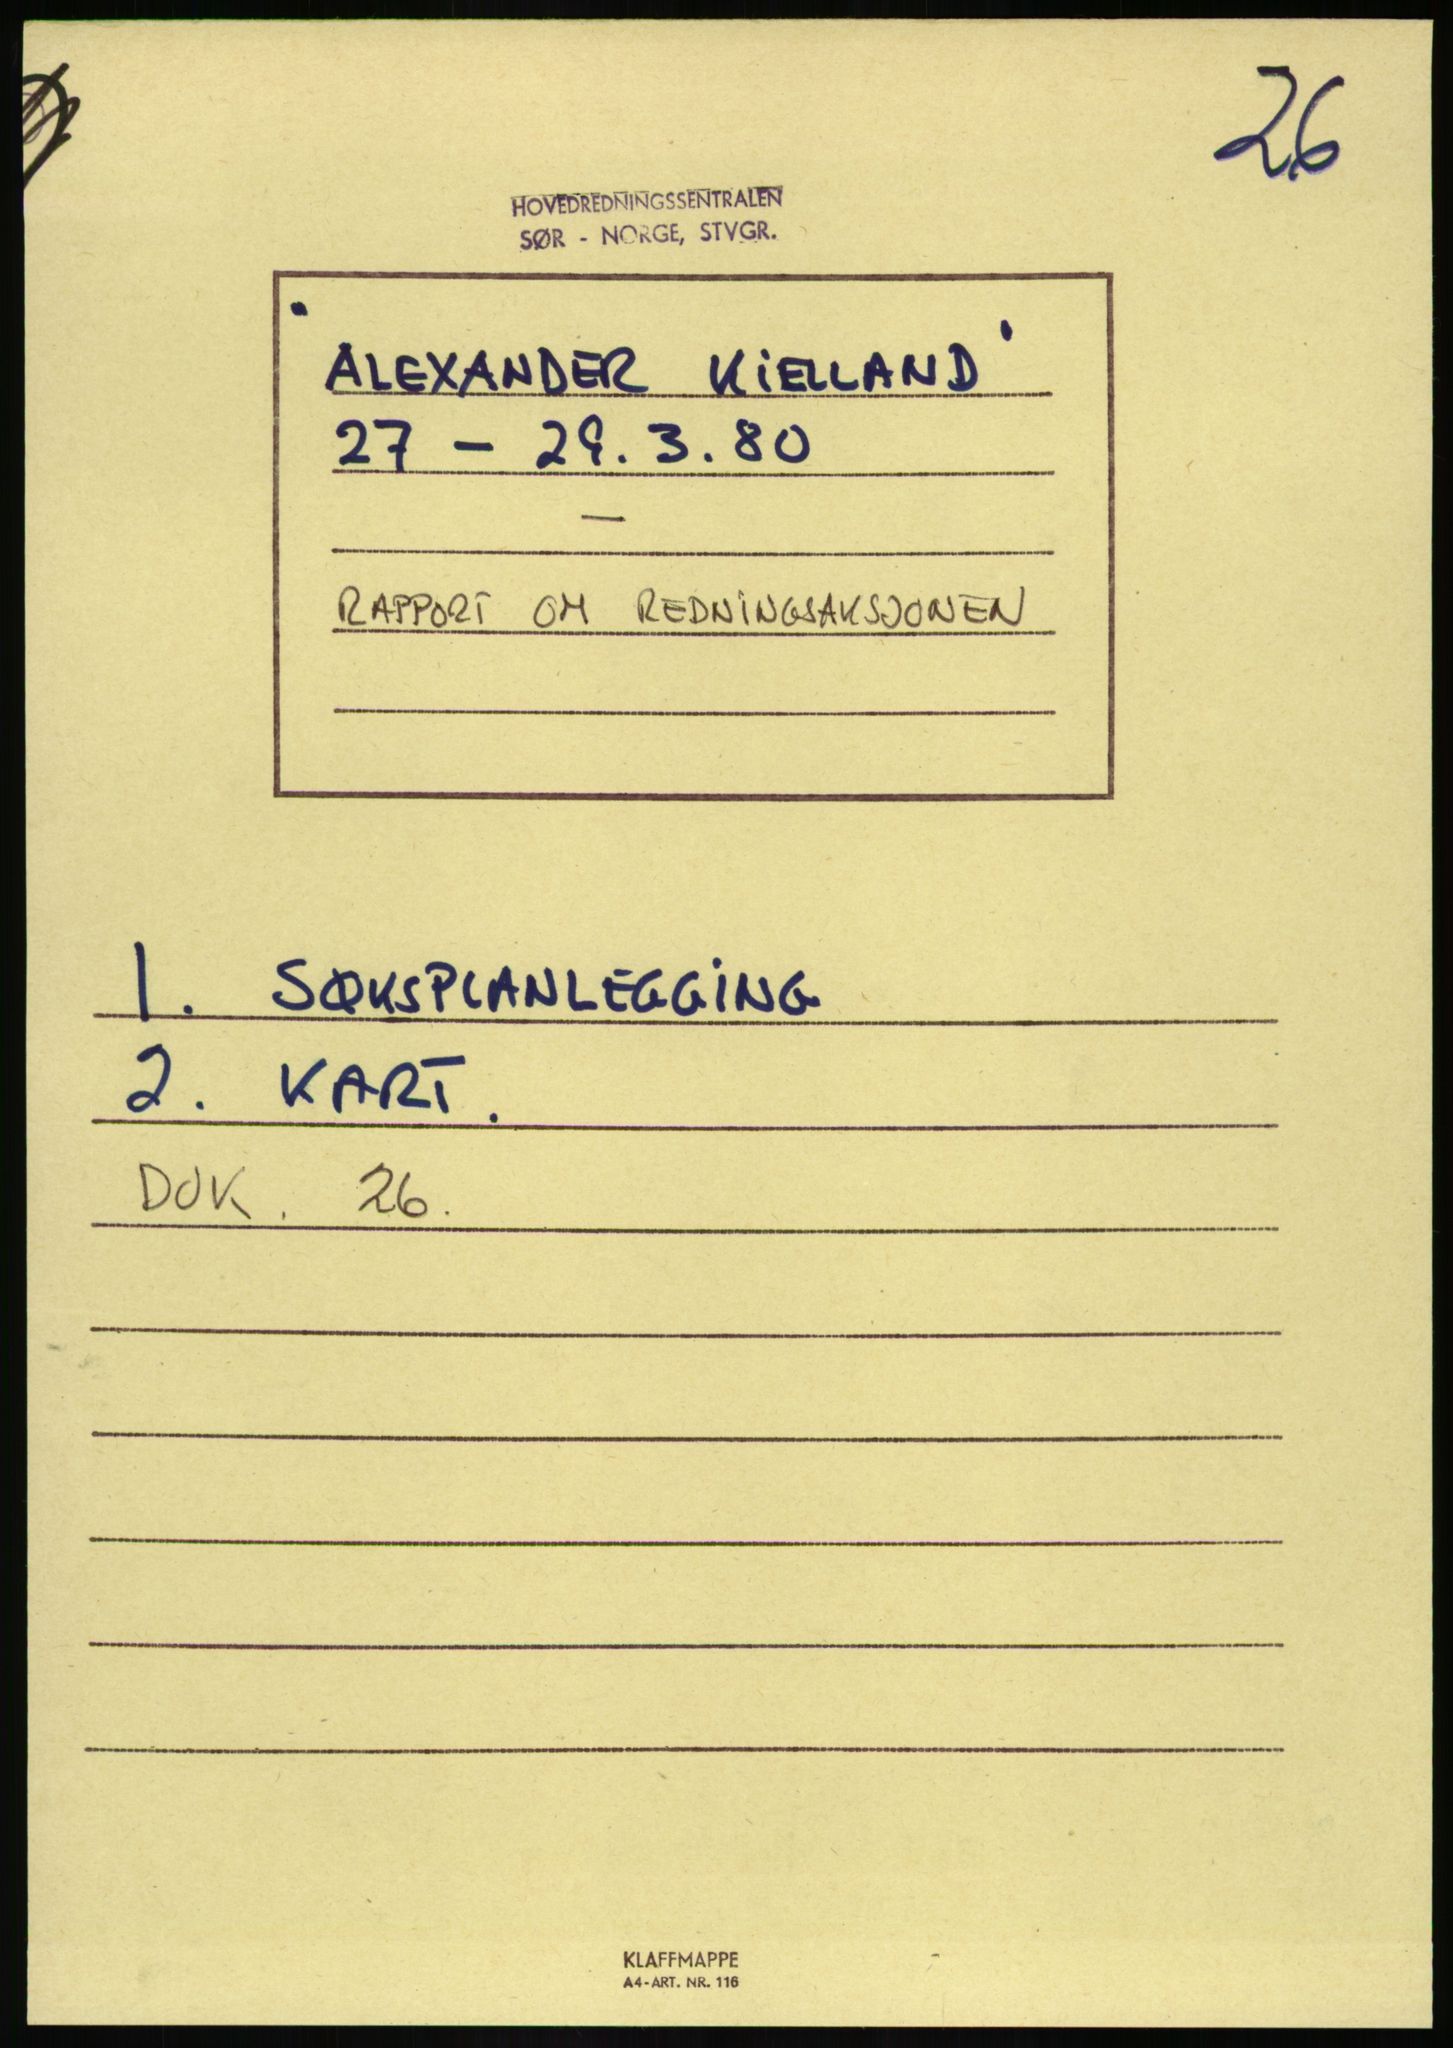 26
HOVEDREDNINGSSENTRALEN
SØR - NORGE, STVGR.
'ALEXANDER KIELLAND'
27 - 29.3.80
—
RAPPORT OM REDNINGSAKSJONEN
1. SØKSPLANLEGGING
2. KART.
DOK. 26.
KLAFFMAPPE
A4-ART. NR. 116